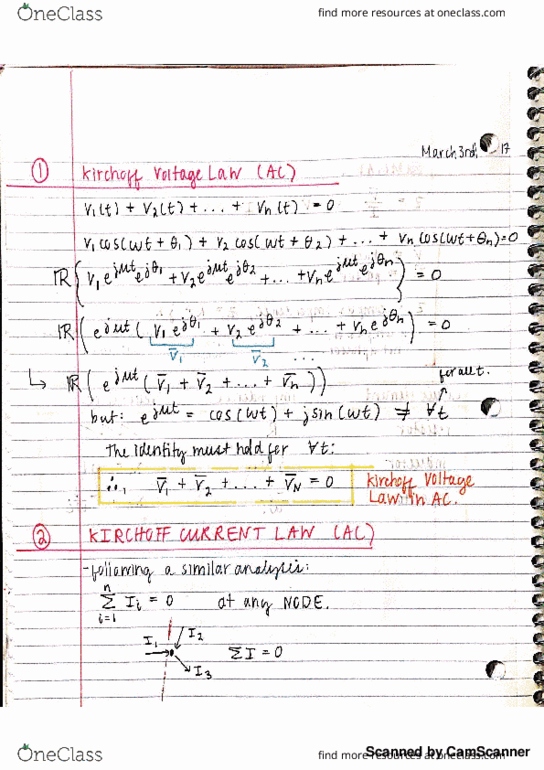 OneClass
find more resources at oneclass.com
March 3rd, 17
① Kirchoff Voltage Law (AC)
V₁(t) + V₂(t) + ... + Vₙ(t) = 0
V₁ cos(ωt + θ₁) + V₂ cos(ωt + θ₂) + ... + Vₙ cos(ωt + θₙ) = 0
ℝ{V₁e^jωt e^jθ₁ + V₂e^jωt e^jθ₂ + ... + Vₙe^jωt e^jθₙ} = 0
ℝ(e^jωt (V₁e^jθ₁ + V₂e^jθ₂ + ... + Vₙe^jθₙ)) = 0
V̄₁ V̄₂ ...
↳ ℝ(e^jωt (V̄₁ + V̄₂ + ... + V̄ₙ))
for all t.
but: e^jωt = cos(ωt) + jsin(ωt) ≠ ∀t
The identity must hold for ∀t:
∴, V̄₁ + V̄₂ + ... + V̄N = 0
Kirchoff Voltage
Law in AC.
② KIRCHOFF CURRENT LAW (AC)
-following a similar analysis:
n
Σ Iᵢ = 0 at any NODE.
i=1
I₁ I₂
ΣI = 0
I₃
OneClass
find more resources at oneclass.com
Scanned by CamScanner